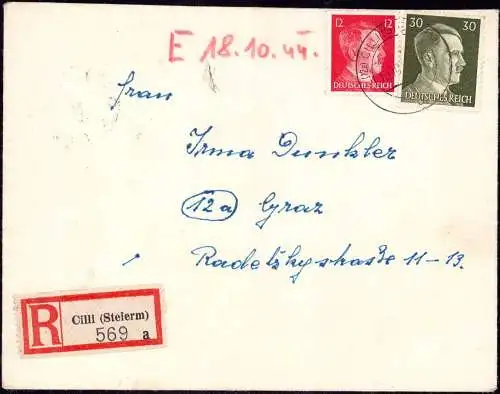 E 18.10.44.
12 12
DEUTSCHES REICH
30 30
DEUTSCHES REICH
Frau
Irma Dunkler
12a Graz
Radetzkystraße 11-13.
R Cilli (Steierm)
569 a